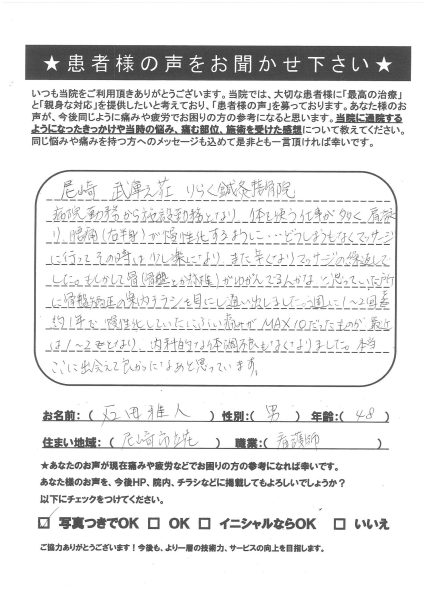 ★患者様の声をお聞かせ下さい★
いつも当院をご利用頂きありがとうございます。当院では、大切な患者様に「最高の治療」
と「親身な対応」を提供したいと考えており、「患者様の声」を募っております。あなた様のお
声が、今後同じように痛みや疲労でお困りの方の参考になると思います。当院に通院する
ようになったきっかけや当時の悩み、痛む部位、施術を受けた感想について教えてください。
同じ悩みや痛みを持つ方へのメッセージも込めて是非とも一言頂ければ幸いです。
尼崎 武庫之荘 りらく鍼灸整骨院
病院勤務から施設勤務となり、体を使う仕事が多く肩こ
り、腰痛(右半身)が慢性化するように…どうしようもなくマッサージ
に行ってその時は少し楽になり、また辛くなりマッサージの繰返しで
した。もしかして骨(骨盤とか 　)がゆがんでるんかなと思っていた所
に骨盤矯正の案内チラシを目にし通い出しました。週に1〜2回
約1年で慢性化していた 痛みがMAX10だったものが最近
は1〜2となり、内科的な体調不良もなくなりました。本当
ここに出会えて良かったなあと思っています。
お名前:(石田雅人) 性別:(男) 年齢:(48)
住まい地域:(尼崎市 荘) 職業:(看護師)
★あなたのお声が現在痛みや疲労などでお困りの方の参考になれば幸いです。
あなた様のお声を、今後HP、院内、チラシなどに掲載してもよろしいでしょうか?
以下にチェックをつけてください。
☑ 写真つきでOK □ OK □ イニシャルならOK □ いいえ
ご協力ありがとうございます!今後も、より一層の技術力、サービスの向上を目指します。